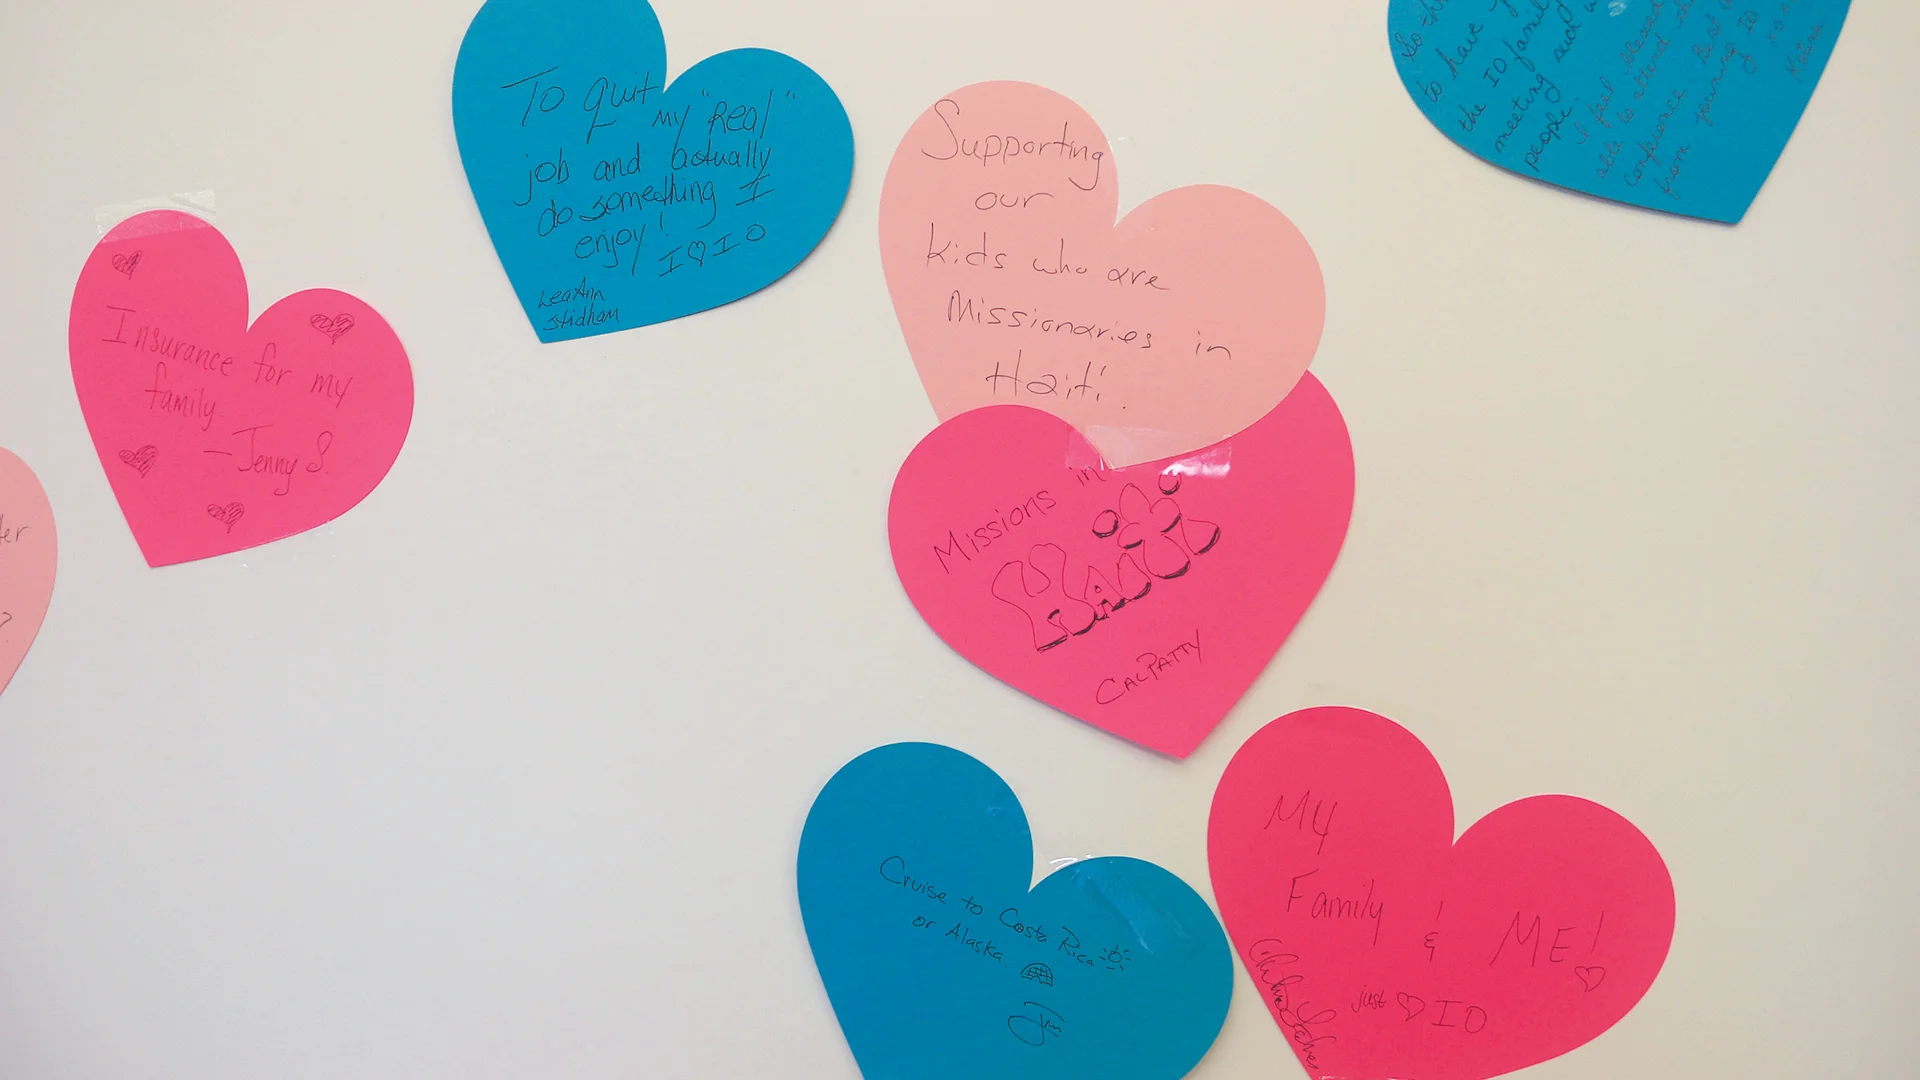 To quit
my "Real"
job and actually
do something I
enjoy!
I ♡ I O
LeaAnn
Stidham
So
to have
the IO family
meeting such
people.
I feel blessed
able to attend
conference
from
Katina
Supporting
our
kids who are
Missionaries in
Haiti.
Insurance for my
family
- Jenny S.
Missions in
Haiti
CalPatty
Cruise to Costa Rica
or Alaska.
Jim
My
Family
&
ME!
just ♡ IO